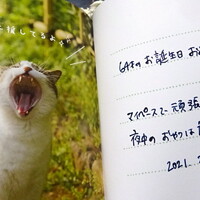 援してるよ
6才のお誕生日 お
マイペースで 頑張
夜中の おやつは
2021.